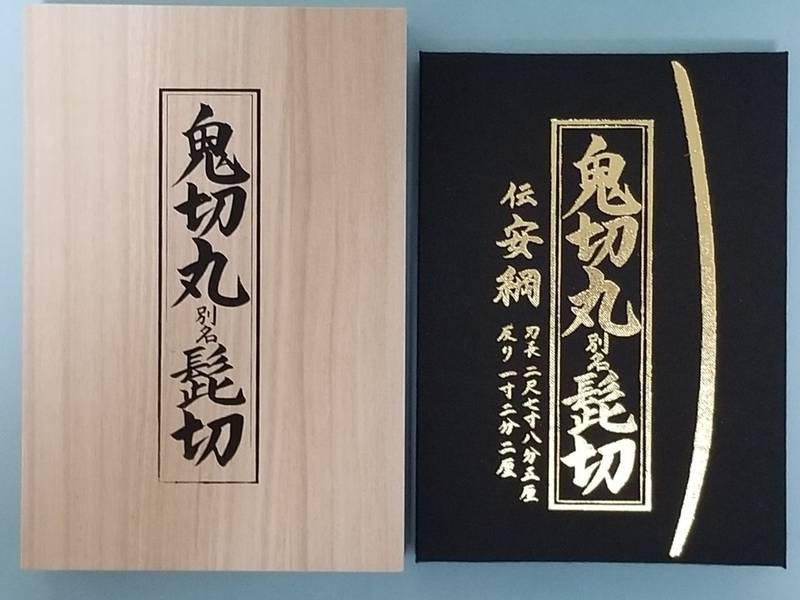 鬼切丸別名髭切
鬼切丸別名髭切
伝安綱
刃長 二尺七寸八分五厘
反り 一寸二分二厘